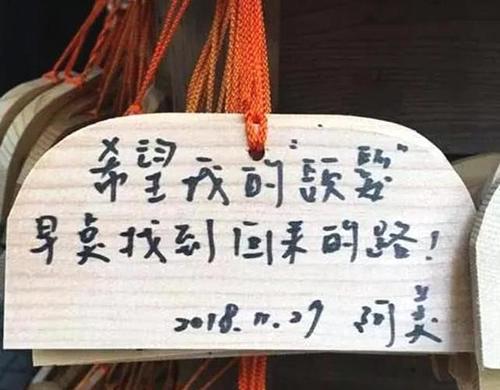 希望我的"頭髮"
早奌找到回来的路!
2018.11.27 阿美